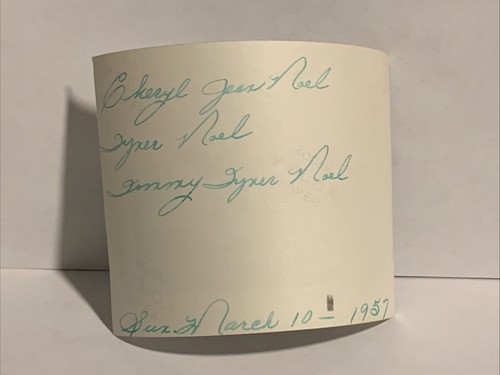 Cheryl Jean Noel
Tyner Noel
Tommy Tyner Noel
Sun. March 10 – 1957